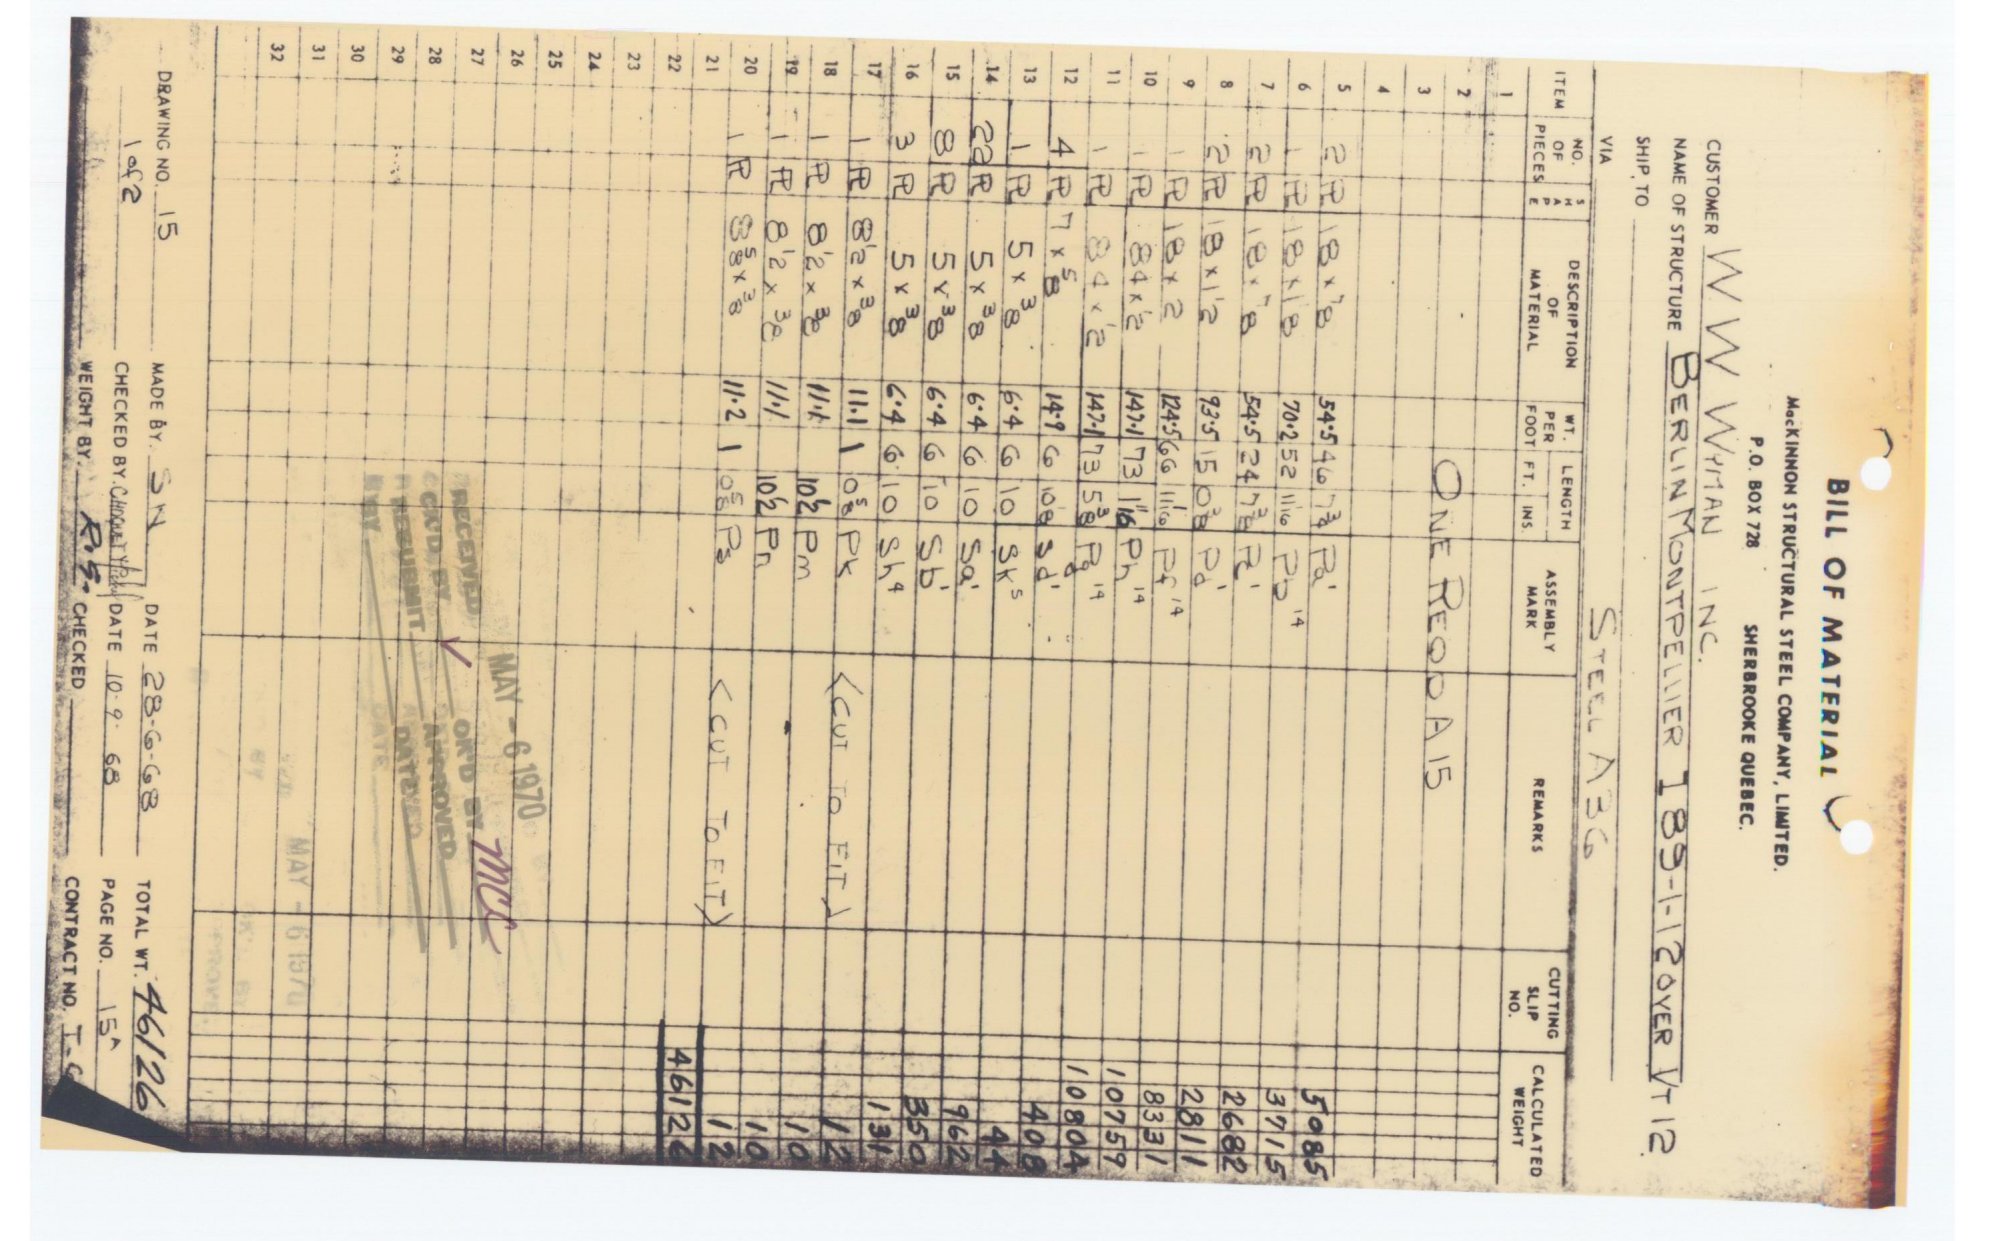 BILL OF MATERIAL
MacKINNON STRUCTURAL STEEL COMPANY, LIMITED.
P.O. BOX 728 SHERBROOKE QUEBEC.
CUSTOMER W W WYMAN INC.
NAME OF STRUCTURE BERLIN MONTPELLIER I 89-1-12 OVER VT 12
SHIP TO
VIA STEEL A36
ITEM NO. OF PIECES SHAPE DESCRIPTION OF MATERIAL WT. PER FOOT LENGTH FT. INS ASSEMBLY MARK REMARKS CUTTING SLIP NO. CALCULATED WEIGHT
1
2
3 ONE REQD A15
4
5 2 PL 18 x 7/8 54.5 46 7 3/8 Pa' 5085
6 1 PL 18 x 1 1/8 70.2 52 11 1/16 Pb 14 3715
7 2 PL 18 x 7/8 54.5 24 7 3/8 Pc' 2682
8 2 PL 18 x 1 1/2 93.5 15 0 3/8 Pd' 2811
9 1 PL 18 x 2 124.5 66 11 1/16 Pf 14 8331
10 1 PL 84 x 1/2 147.1 73 1 1/16 Ph 14 10759
11 1 PL 84 x 1/2 147.1 73 5 3/8 Pg 14 10804
12 4 PL 7 x 5/8 14.9 6 10 1/8 Sd' 408
13 1 PL 5 x 3/8 6.4 6 10 Sk 5 44
14 22 PL 5 x 3/8 6.4 6 10 Sa' 962
15 8 PL 5 x 3/8 6.4 6 10 Sb' 350
16 3 PL 5 x 3/8 6.4 6 10 Sh 4 131
17 1 PL 8 1/2 x 3/8 11.1 1 0 5/8 Pk 12
18 1 PL 8 1/2 x 3/8 11.1 10 1/2 Pm <CUT TO FIT> 10
19 1 PL 8 1/2 x 3/8 11.1 10 1/2 Pn 10
20 1 PL 8 5/8 x 3/8 11.2 1 0 5/8 12
21 <CUT TO FIT>
22 46126
23
24
25
26
27
28
29
30
31
32
MAY - 6 1970
RECEIVED OK'D BY
CK'D. BY APPROVED
RESUBMIT
BY DATE
MAY - 6 1970
DRAWING NO. 15 MADE BY. SN DATE 28-6-68 TOTAL WT. 46126
1 of 2 CHECKED BY. DATE 10.9.68 PAGE NO. 15A
WEIGHT BY. CHECKED CONTRACT NO.